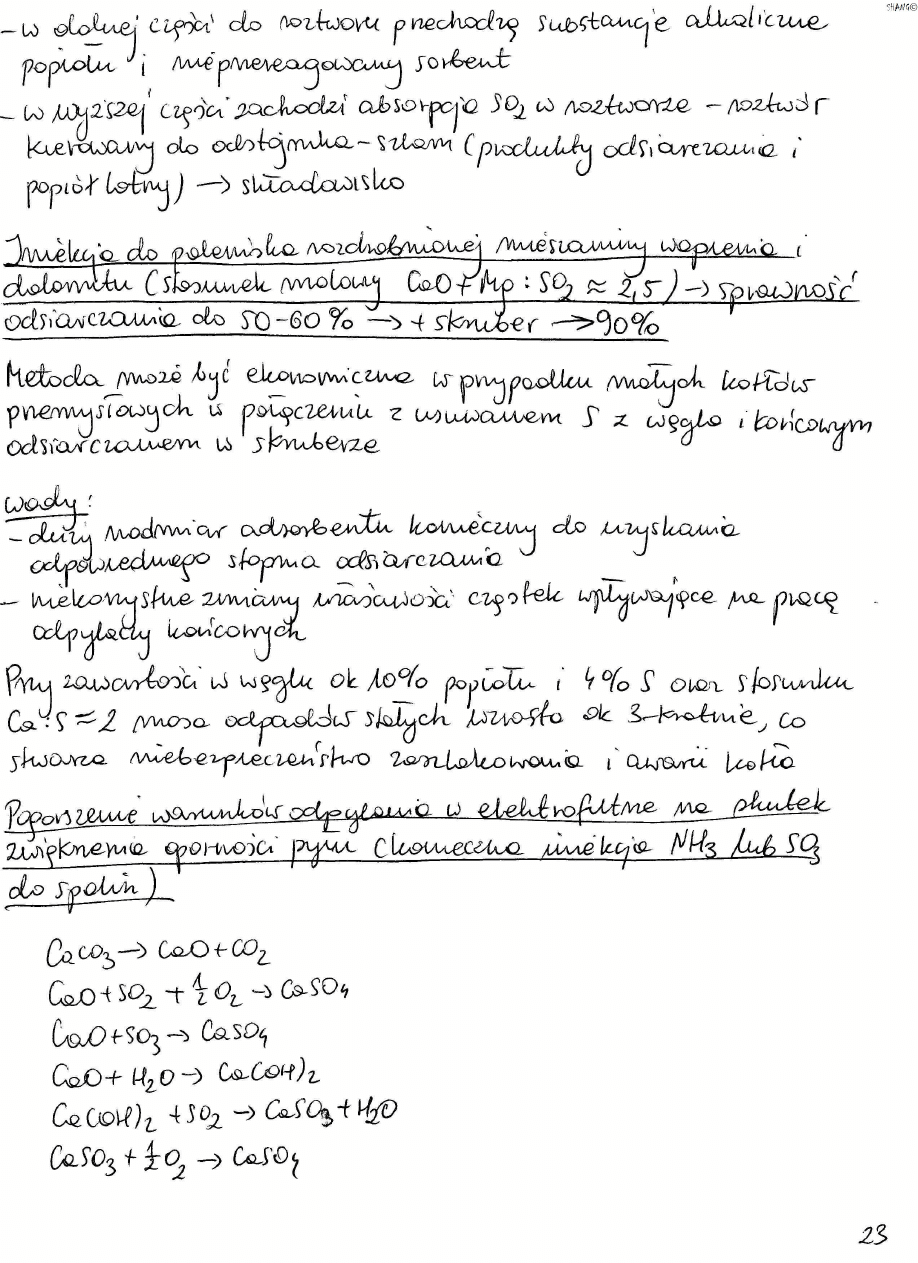 SHANG©
- w dolnej części do roztworu przechodzą substancje alkaliczne
popiołu i nieprzereagowany sorbent
- w wyższej części zachodzi absorpcja SO2 w roztworze - roztwór
kierowany do odstojnika - szlam (produkty odsiarczania i
popiół lotny) → składowisko
Iniekcja do paleniska rozdrobnionej mieszaniny wapienia i
dolomitu (stosunek molowy CaO + Mg : SO2 ≈ 2,5) → sprawność
odsiarczania do 50-60% → + skruber → 90%
Metoda może być ekonomiczna w przypadku małych kotłów
przemysłowych w połączeniu z usuwaniem S z węgla i końcowym
odsiarczaniem w skruberze
wady:
- duży nadmiar adsorbentu konieczny do uzyskania
odpowiedniego stopnia odsiarczania
- niekorzystne zmiany właściwości cząstek wpływające na pracę
odpylaczy końcowych
Przy zawartości w węglu ok 10% popiołu i 4% S oraz stosunku
Ca:S = 2 masa odpadów stałych wzrasta ok 3-krotnie, co
stwarza niebezpieczeństwo zaszlakowania i awarii kotła
Pogorszenie warunków odpylania w elektrofiltrze na skutek
zwiększenia oporności pyłu (konieczna iniekcja NH3 lub SO3
do spalin)
CaCO3 → CaO + CO2
CaO + SO2 + 1/2 O2 → CaSO4
CaO + SO3 → CaSO4
CaO + H2O → Ca(OH)2
Ca(OH)2 + SO2 → CaSO3 + H2O
CaSO3 + 1/2 O2 → CaSO4
23